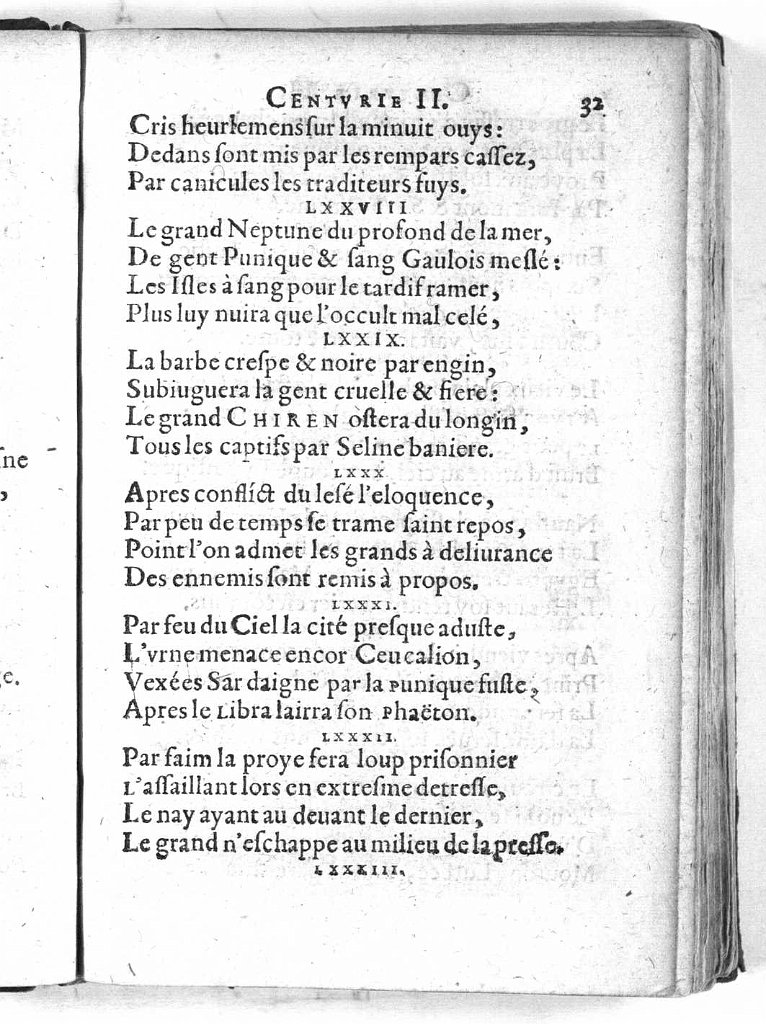 CENTVRIE II. 32
Cris heurlemens ſur la minuit ouys:
Dedans ſont mis par les rempars caſſez,
Par canicules les traditeurs fuys.
LXXVIII
Le grand Neptune du profond de la mer,
De gent Punique & ſang Gaulois meſlé:
Les Iſles à ſang pour le tardif ramer,
Plus luy nuira que l'occult mal celé,
LXXIX.
La barbe creſpe & noire par engin,
Subiuguera la gent cruelle & fiere:
Le grand CHIREN oſtera du longin,
Tous les captifs par Seline baniere.
LXXX
Apres conflict du leſé l'eloquence,
Par peu de temps ſe trame ſaint repos,
Point l'on admet les grands à deliurance
Des ennemis ſont remis à propos.
LXXXI.
Par feu du Ciel la cité preſque aduſte,
L'vrne menace encor Ceucalion,
Vexées Sardaigne par la punique fuſte,
Apres le Libra lairra ſon Phaëton.
LXXXII.
Par faim la proye fera loup priſonnier
L'aſſaillant lors en extreſme detreſſe,
Le nay ayant au deuant le dernier,
Le grand n'eſchappe au milieu de la preſſe.
LXXXIII.
ſne
,
ge.